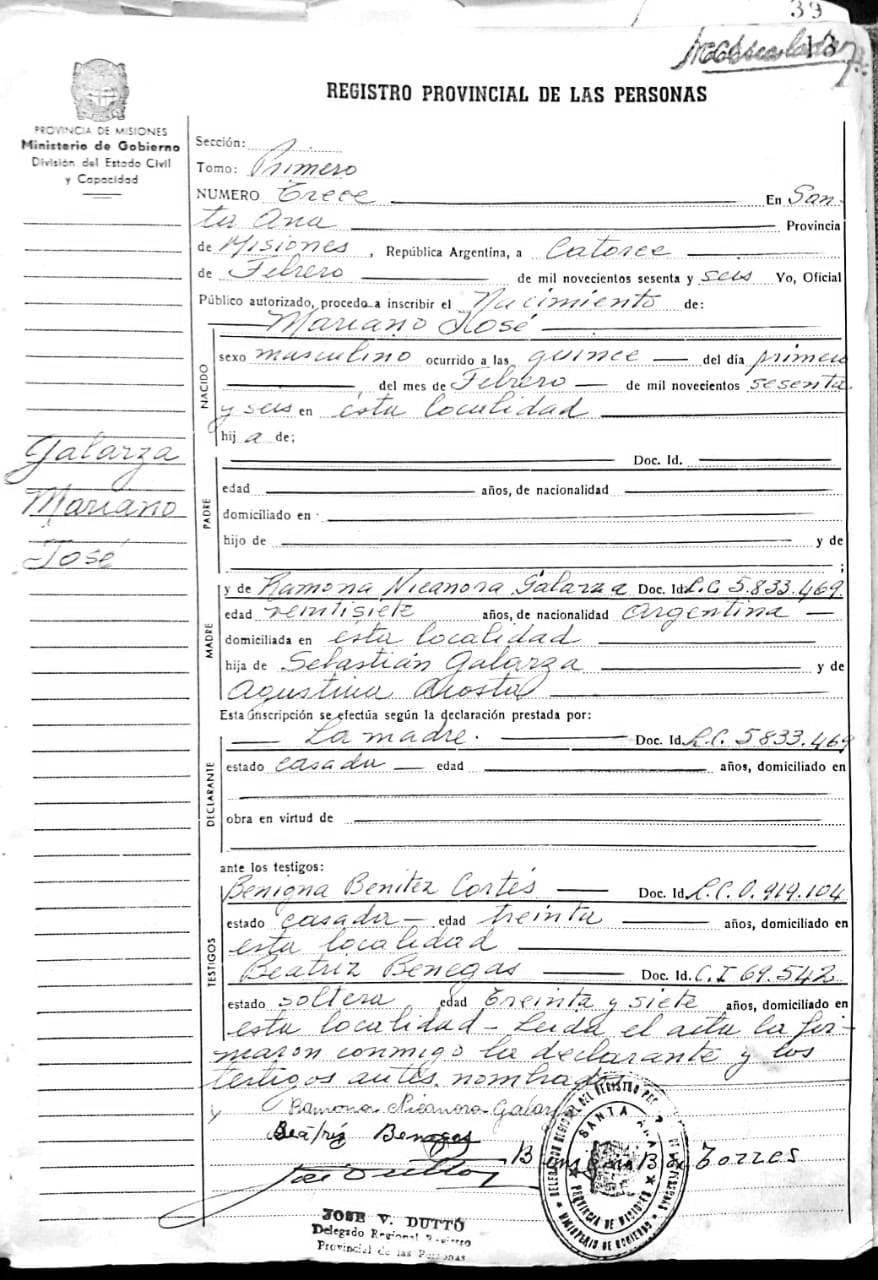 39
13
PROVINCIA DE MISIONES
Ministerio de Gobierno
División del Estado Civil
y Capacidad
REGISTRO PROVINCIAL DE LAS PERSONAS
Sección:
Tomo: Primero
NUMERO Trece En San-
ta Ana Provincia
de Misiones, República Argentina, a Catorce
de Febrero de mil novecientos sesenta y seis Yo, Oficial
Público autorizado, procedo a inscribir el Nacimiento de:
Mariano José
NACIDO
sexo masculino ocurrido a las quince del día primero
del mes de Febrero de mil novecientos sesenta
y seis en ésta localidad
hij a de;
Galarza
Mariano
José
PADRE
Doc. Id.
edad años, de nacionalidad
domiciliado en
hijo de y de
;
MADRE
y de Ramona Nicanora Galarza Doc. Id. L.C 5.833.469
edad veintisiete años, de nacionalidad Argentina
domiciliada en ésta localidad
hija de Sebastián Galarza y de
Agustina Acosta
Esta inscripción se efectúa según la declaración prestada por:
DECLARANTE
La madre. Doc. Id. L.C. 5833.469
estado casada edad años, domiciliado en
obra en virtud de
ante los testigos:
TESTIGOS
Benigna Benitez Cortés Doc. Id. L.C.0.919.104
estado casada edad treinta años, domiciliado en
esta localidad
Beatriz Benegas Doc. Id. C.I 69.542
estado soltera edad treinta y siete años, domiciliado en
esta localidad - Leída el acta la fir-
maron conmigo la declarante y los
testigos antes nombrados
Ramona Nicanora Galarza
Beatriz Benegas
Torres
JOSE V. DUTTÓ
Delegado Regional Registro
Provincial de las Personas
DELEGACION REGIONAL DEL REGISTRO
SANTA ANA
PROVINCIA DE MISIONES
MINISTERIO DE GOBIERNO